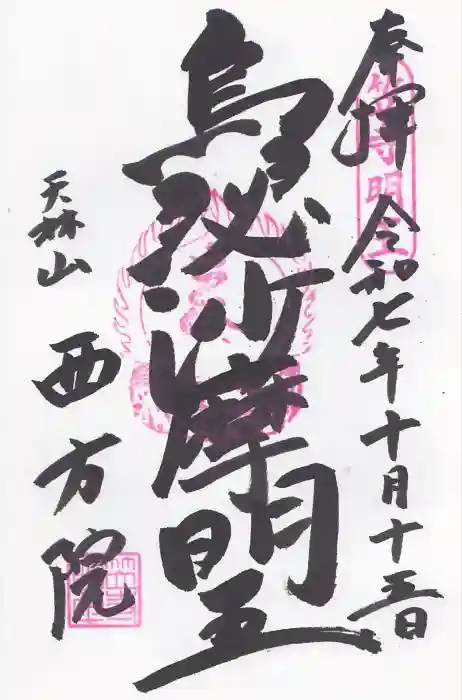 奉拝 令和七年十月十三日
笠寺明王
烏瑟沙摩明王
天林山
西方院